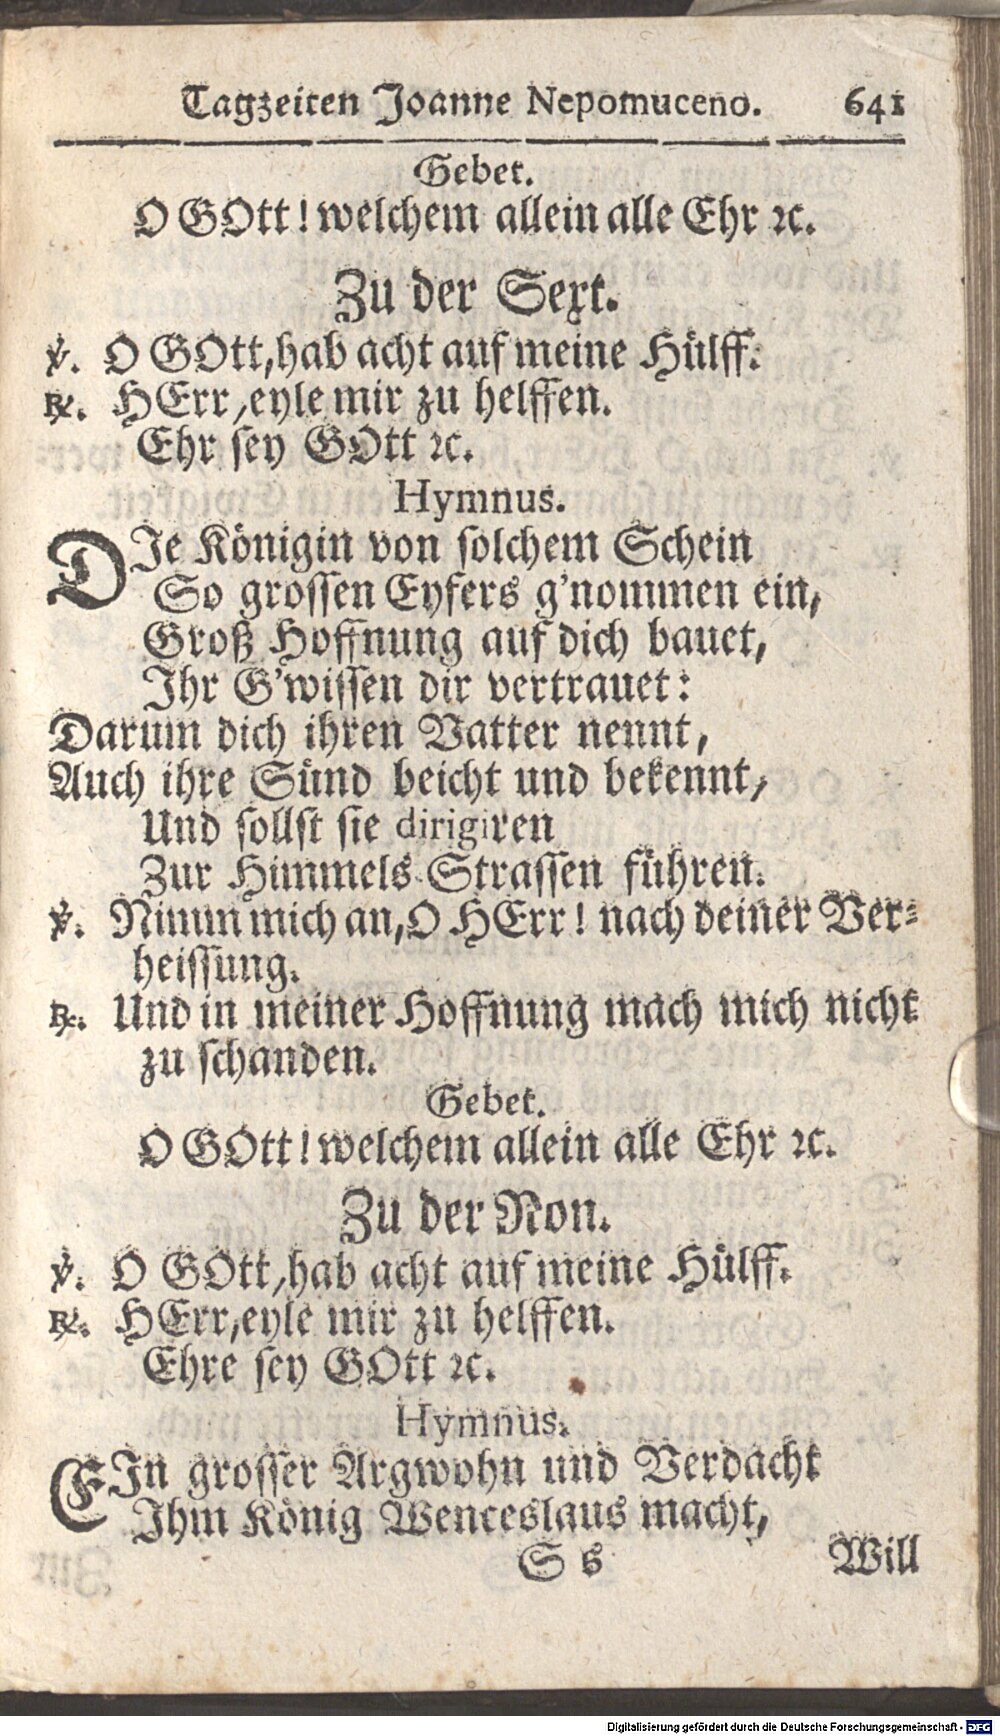 Tagzeiten Joanne Nepomuceno. 641
Gebet.
O GOtt! welchem allein alle Ehr ꝛc.
Zu der Sext.
℣. O GOtt, hab acht auf meine Hülff.
℟. HErr, eyle mir zu helffen.
Ehr sey GOtt ꝛc.
Hymnus.
DIe Königin von solchem Schein
So grossen Eyfers g'nommen ein,
Groß Hoffnung auf dich bauet,
Ihr G'wissen dir vertrauet:
Darum dich ihren Vatter nennt,
Auch ihre Sünd beicht und bekennt,
Und sollst sie dirigiren
Zur Himmels-Strassen führen.
℣. Nimm mich an, O HErr! nach deiner Ver-
heissung.
℟. Und in meiner Hoffnung mach mich nicht
zu schanden.
Gebet.
O GOtt! welchem allein alle Ehr ꝛc.
Zu der Non.
℣. O GOtt, hab acht auf meine Hülff.
℟. HErr, eyle mir zu helffen.
Ehre sey GOtt ꝛc.
Hymnus.
EIn grosser Argwohn und Verdacht
Ihm König Wenceslaus macht,
S s Will
Digitalisierung gefördert durch die Deutsche Forschungsgemeinschaft - DFG